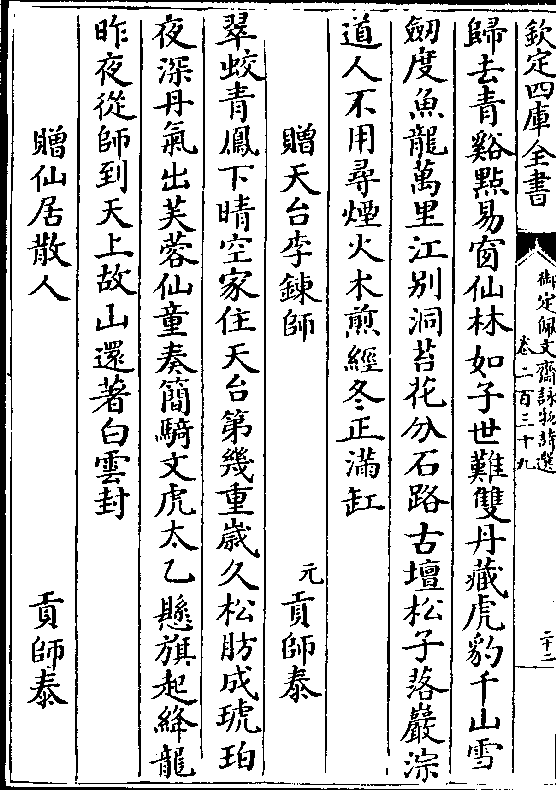 欽定四庫全書
御定佩文齋詠物詩選
卷二百三十九
二十二
歸去青谿點易窗仙林如子世難雙丹藏虎豹千山雪
劒度魚龍萬里江别洞苔花分石路古壇松子落巖淙
道人不用尋煙火术煎經冬正滿缸
贈天台李鍊師 元 貢師泰
翠蛟青鳳下晴空家住天台第幾重嵗久松肪成琥珀
夜深丹氣出芙蓉仙童奏簡騎文虎太乙懸旗起絳龍
昨夜從師到天上故山還著白雲封
贈仙居散人 貢師泰